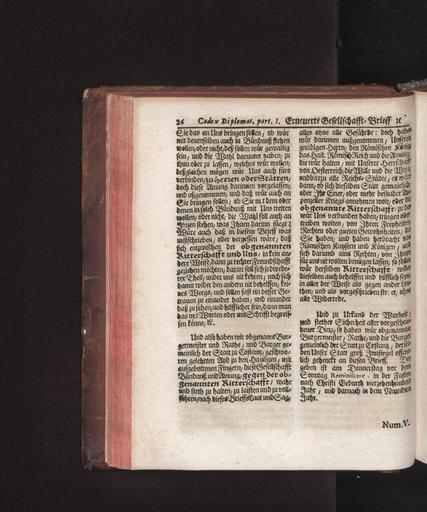 26 Codex Diplomat. part. I. Erneuerte Gesellschafft-Brieff ꝛc
Sie das an Uns bringen sollen, ob wür
mit denenselben auch in Bündnuß stehen
wollen, oder nicht, deß sollen wür gewaltig
sein, und die Wahl darunter haben, zu
thun oder zu lassen, welches wür wollen,
deßgleichen mögen wür Uns auch fürо
verbinden, zu Herren oder Stätten,
doch diese Ainung darinnen vorgelassen,
und ußgenommen, und daß wür auch an
Sie bringen sollen, ob Sie mit dem oder
denen in solch Bündnuß mit Uns tretten
wollen, oder nicht, die Wahl soll auch an
Ihnen stehen, was Ihnen darinn füegt;
Wäre auch daß in diesem Brieff was
mißschrieben, oder vergessen wäre, daß
sich entzwischen der obgenannten
Ritterschafft und Uns, in kein an-
derer Weiß, dann zu rechter Freundschafft
geziehen möchten, daran soll sich jedwede-
rer Theil, under uns nit kehren, noch sich
damit wider den andern nit behelffen, kei-
nes Weegs, und sollen sust ein besser Ge-
trauen zu einander haben, und einander
baß zu sehen, und hilfflicher sein, dann man
das mit Worten oder mit Schrifft begreif-
fen könne, ꝛc.
Und alß haben wir obgenannt Bur-
germeister und Rathe, und Burger ge-
meinlich der Statt zu Costanz, geschwo-
ren gelehrten Ayd zu den Hayligen, mit
aufgebottenen Fingern, diese Gesellschafft
Bündnuß und Ainung, gegen der ob-
genannten Ritterschafft, wahr
und steth zu halten, zu laisten und zu voll-
führen, nach dieses Brieffs Laut und Sag,
alles ohne all Gefährde: doch haben
wür darinnen außgenommen, Unseren
gnädigen Herrn, den Römischen König
das Hail. Römisch Reich und die
die wür halten, mit Unserer Herrschafft
von Oesterreich, die Wille und die
und darzu alle Reichs-Städte, es wäre
dann, ob sich dieselben Stätt gemainlich
oder Ihr Einer, oder mehr besonder
Krieg annehmen wolt, oder die
obgenannte Ritterschafft, zu der
wür Uns verbunden haben, tringen oder
treiben wolten, von Ihren Freyheiten
Rechten oder gueten Gewohnheiten, das
Sie haben, und haben herbracht von
Römischen Kaysern und Königen, und
sich darumb ains Rechten, von Ihnen
für uns nit wolten benügen lassen, so sollen
wür derselben Ritterschafft, wider
dieselben auch beholffen und hilfflich seyn,
in aller der Weise als gegen andere Leu-
then, und als vorgeschrieben steet, ohne
alle Widerrede.
Und zu Urkund der Warheit,
und stether Sicherheit aller vorgeschri-
bener Ding, so haben wür obgenannte
Burgermeister, Rathe, und die Burger
gemeinlich der Statt zu Costanz,
ben Unser Statt groß Innsiegel offent-
lich gehenckt an diesen Brieff. Der
geben ist am Donerstag vor dem
Sonntag Reminiscere, in der Fasten
nach Christi Geburth vierzehenhundert
Jahr, und darnach in dem Neundten
Jahr.
Num.V.